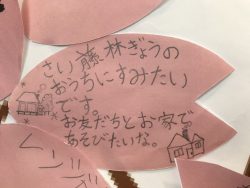 さい藤林ぎょうの
おうちにすみたい
です。
お友だちとお家で
あそびたいな。